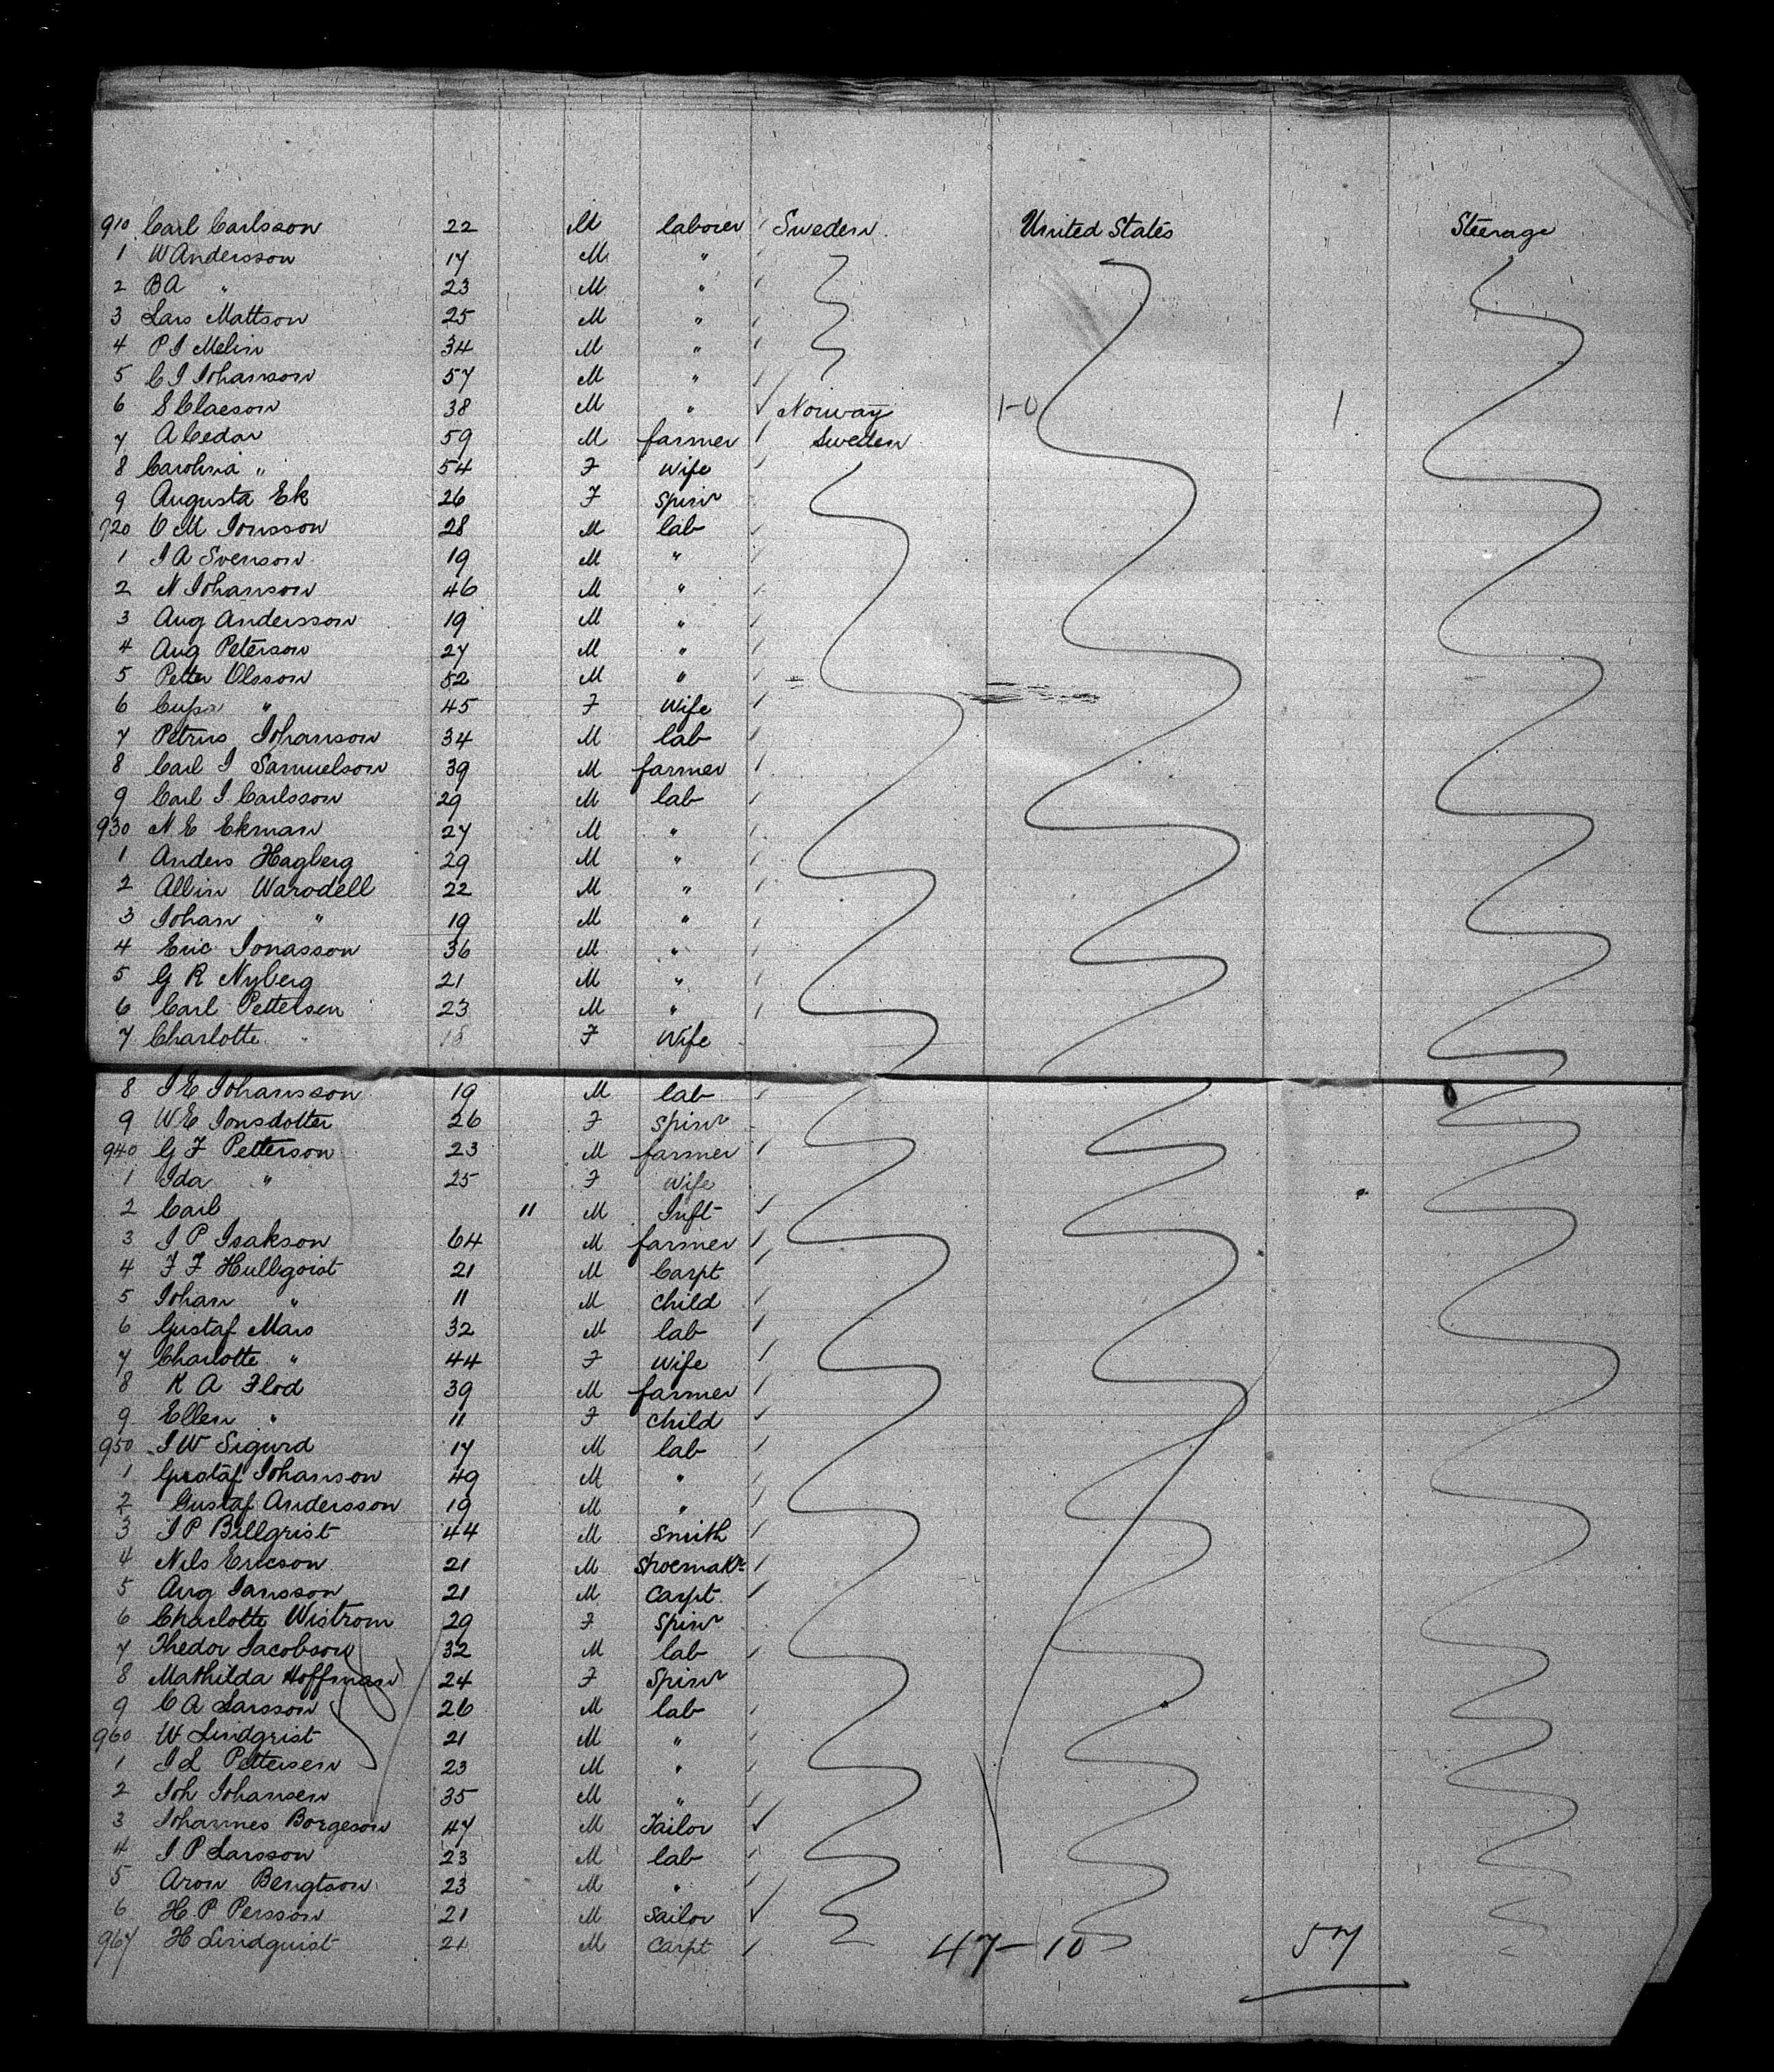 910 Carl Carlsson 22 M laborer Sweden United States Steerage
1 W Andersson 17 M "
2 B A " 23 M "
3 Lars Mattson 25 M "
4 P I Melin 34 M "
5 C I Johanson 57 M "
6 S Claeson 38 M " Norway 1-0 1
7 A Cedar 59 M farmer Sweden
8 Carolina " 54 F Wife
9 Augusta Ek 26 F Spinr
920 C M Jonsson 28 M lab
1 J A Svenson 19 M "
2 N Johanson 46 M "
3 Aug Andersson 19 M "
4 Aug Peterson 27 M "
5 Petter Olsson 52 M "
6 " 45 F Wife
7 Petrus Johanson 34 M lab
8 Carl J Samuelson 39 M farmer
9 Carl J. Carlsson 29 M lab
930 N E Ekman 27 M "
1 Anders Hagberg 29 M "
2 Albin Warodell 22 M "
3 Johan " 19 M "
4 Eric Jonasson 36 M "
5 G R Nyberg 21 M "
6 Carl Pettersen 23 M "
7 Charlotte " 18 F Wife
8 J E Johansson 19 M lab
9 W E Jonsdotter 26 F Spinr
940 G F Petterson 23 M farmer
1 Ida " 25 F Wife
2 Carl 11 M Inft
3 J P Isakson 64 M farmer
4 F F Hullqoist 21 M Carpt
5 Johan " 11 M child
6 Gustaf Mars 32 M lab
7 Charlotte " 44 F Wife
8 K A Flod 39 M farmer
9 Ellen " 11 F child
950 J W Sigurd 17 M lab
1 Gustaf Johanson 49 M "
2 Gustaf Andersson 19 M "
3 J P Billgrist 44 M Smith
4 Nils Ericson 21 M Shoemakr
5 Aug Jansson 21 M Carpt.
6 Charlotte Wistrom 29 F Spinr
7 Thedor Jacobson 32 M lab
8 Mathilda Hoffman 24 F Spinr
9 C A Larsson 26 M lab
960 W Lindgrist 21 M "
1 J L Pettersen 23 M "
2 Joh Johansen 35 M "
3 Johannes Borgeson 47 M Tailor
4 J P Larsson 23 M lab
5 Aron Bengtson 23 M "
6 H. P Persson 21 M Sailor
967 H Lindquist 21 M Carpt 47-10 57